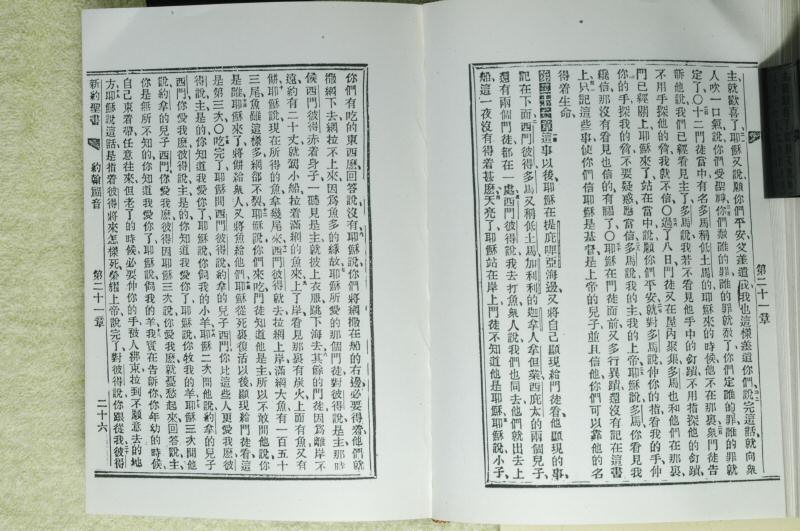 主、就歡喜了、耶穌又說、願你們平安、父差遣我、我也這樣差遣你們、說完這話、就向衆
人吹一口氣、說、你們受聖神、你們赦誰的罪、誰的罪就赦了、你們定誰的罪、誰的罪就
定了、〇十二門徒當中、有名多馬稱低土馬的、耶穌來的時候、他不在那裏、衆門徒告
訴他說、我們已經看見主了、多馬說、我若不看見他手中的釘蹟、不用指探他的釘蹟、
不用手探他的脅、我就不信、〇過了八日、門徒又在屋內聚集、多馬也和他們在那裏、
門已經關上、耶穌來了、站在當中說、願你們平安、就對多馬說、伸你的指看我的手、伸
你的手探我的脅、不要疑惑、應當信、多馬說、我的主、我的上帝、耶穌說、多馬、你看見我
纔信、那沒有看見也信的有福了、〇耶穌在門徒面前、又多行異蹟、還沒有記在這書
上、只記這些事、使你們信耶穌是基督、是上帝的兒子、並且信他、你們可以靠他的名
得着生命、
第二十一章這事以後、耶穌在提庇哩亞海邊、又將自己顯現給門徒看、他顯現的事、
記在下面、西門彼得、多馬又稱低土馬、加利利的迦拿人拿但業、西庇太的兩個兒子、
還有兩個門徒、都在一處、西門彼得說、我去打魚、衆人說、我們也同去、他們就出去上
船、這一夜沒有得着甚麼、天亮了、耶穌站在岸上、門徒不知道他是耶穌、耶穌說、小子、
第二十一章
你們有吃的東西麽、回答說、沒有、耶穌說、你們將網撒在船的右邊、必要得着、他們就
撒下去、網拉不上來、因爲魚多的緣故、耶穌所愛的那個門徒、對彼得說、是主、那時
候西門彼得赤着身子、一聽見是主、就披上衣服、跳下海去、其餘的門徒、因爲離岸不
遠、約有二十丈、就駕小船、拉着滿網的魚來了、上了岸、看見那裏有炭火、上面有魚、又有
餅、耶穌說、現在所得的魚、拿幾尾來、西門彼得就去拉網上岸、滿網大魚、有一百五十
三尾、魚雖這樣多、網都不裂、耶穌說、你們來吃、門徒知道他是主、所以不敢問他說、你
是誰、耶穌來了、將餅給衆人、又將魚給他們、耶穌從死裏復活以後、顯現給門徒看、這
是第三次、〇吃完了、耶穌問西門彼得說、約拿的兒子西門、你比這些人更愛我麽、彼
得說、主、是的、你知道我愛你了、耶穌說、你餧我的小羊、耶穌二次問他說、約拿的兒子
西門、你愛我麽、彼得說、主、是的、你知道我愛你了、耶穌說、你牧我的羊、耶穌三次問他
說、約拿的兒子西門、你愛我麽、彼得因耶穌三次說、你愛我麽、就憂愁起來、回答說、主、
你是無所不知的、你知道我愛你了、耶穌說、你餧我的羊、我實在告訴你、你年幼的時候、
自己束着帶、任意往來、但老了的時候、必要伸你的手、被人綁束、拉到不願意去的地
方、耶穌說這話、是指着彼得將來怎樣死、榮耀上帝、說完了、對彼得說、你跟從我、彼得
新約聖書 約翰福音 第二十一章 二十六